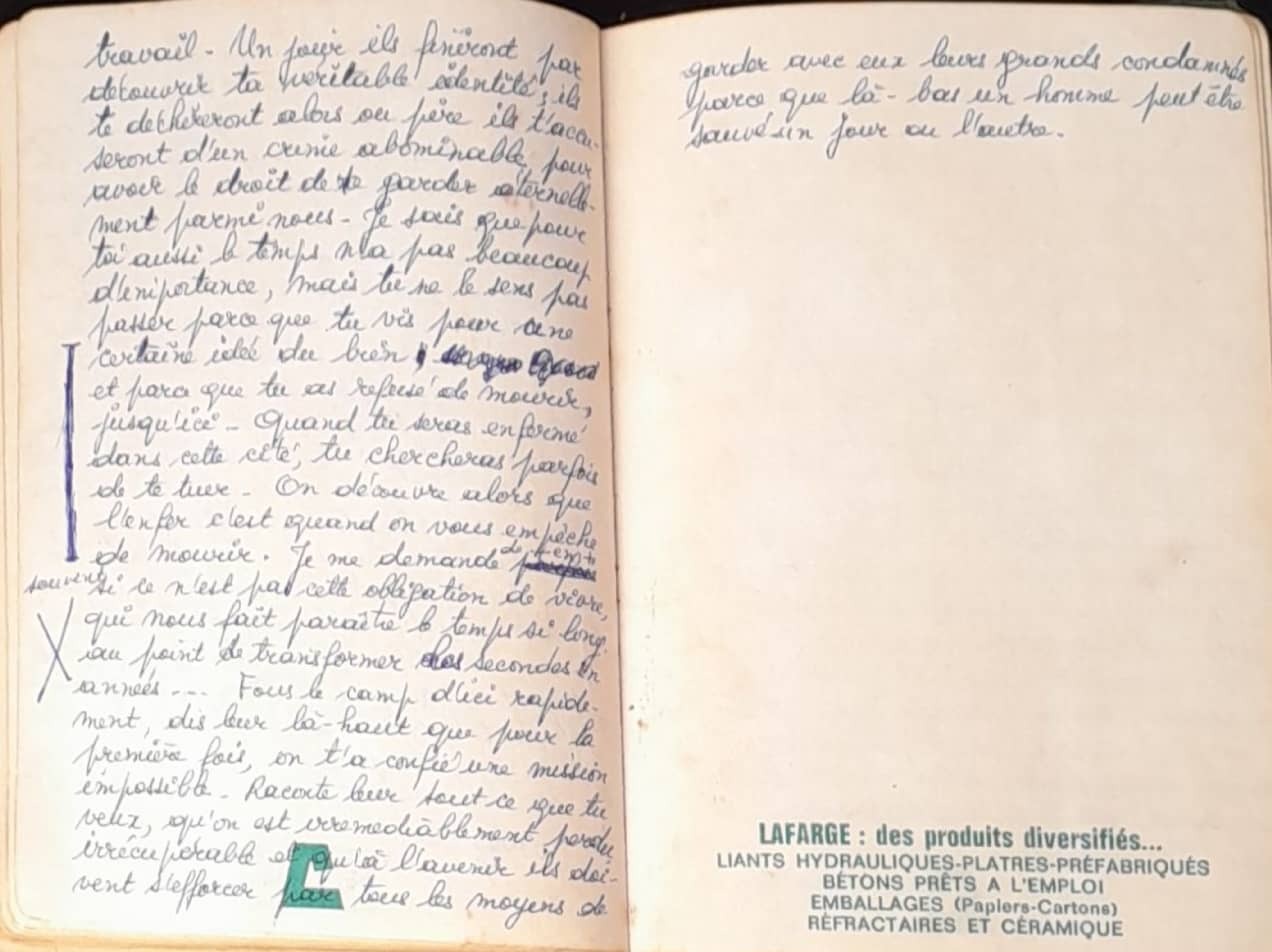 travail - Un jour ils finiront par
découvrir ta véritable identité ; ils
te dechireront alors ou pire ils t'accu-
seront d'un crime abominable pour
avoir le droit de te garder éternelle-
ment parmi nous - Je sais que pour
toi aussi le temps n'a pas beaucoup
d'importance, mais tu ne le sens pas
passer parce que tu vis pour une
certaine idée du bien
et parce que tu as refusé de mourir,
jusqu'ici - Quand tu seras enfermé
dans cette cité, tu chercheras parfois
de te tuer - On découvre alors que
l'enfer c'est quand on vous empêche
de mourir. Je me demande
souvent si ce n'est pas cette obligation de vivre,
qui nous fait paraître le temps si long
au point de transformer des secondes en
années --- Fous le camp d'ici rapide-
ment, dis leur là-haut que pour la
première fois, on t'a confié une mission
impossible - Raconte leur tout ce que tu
veux, qu'on est irremediablement perdu
irrécupérable et qu'à l'avenir ils doi-
vent s'efforcer par tous les moyens de
garder avec eux leurs grands condamnés
parce que là-bas un homme peut être
sauvé un jour ou l'autre.
LAFARGE : des produits diversifiés...
LIANTS HYDRAULIQUES-PLATRES-PRÉFABRIQUÉS
BÉTONS PRÊTS A L'EMPLOI
EMBALLAGES (Papiers-Cartons)
RÉFRACTAIRES ET CÉRAMIQUE